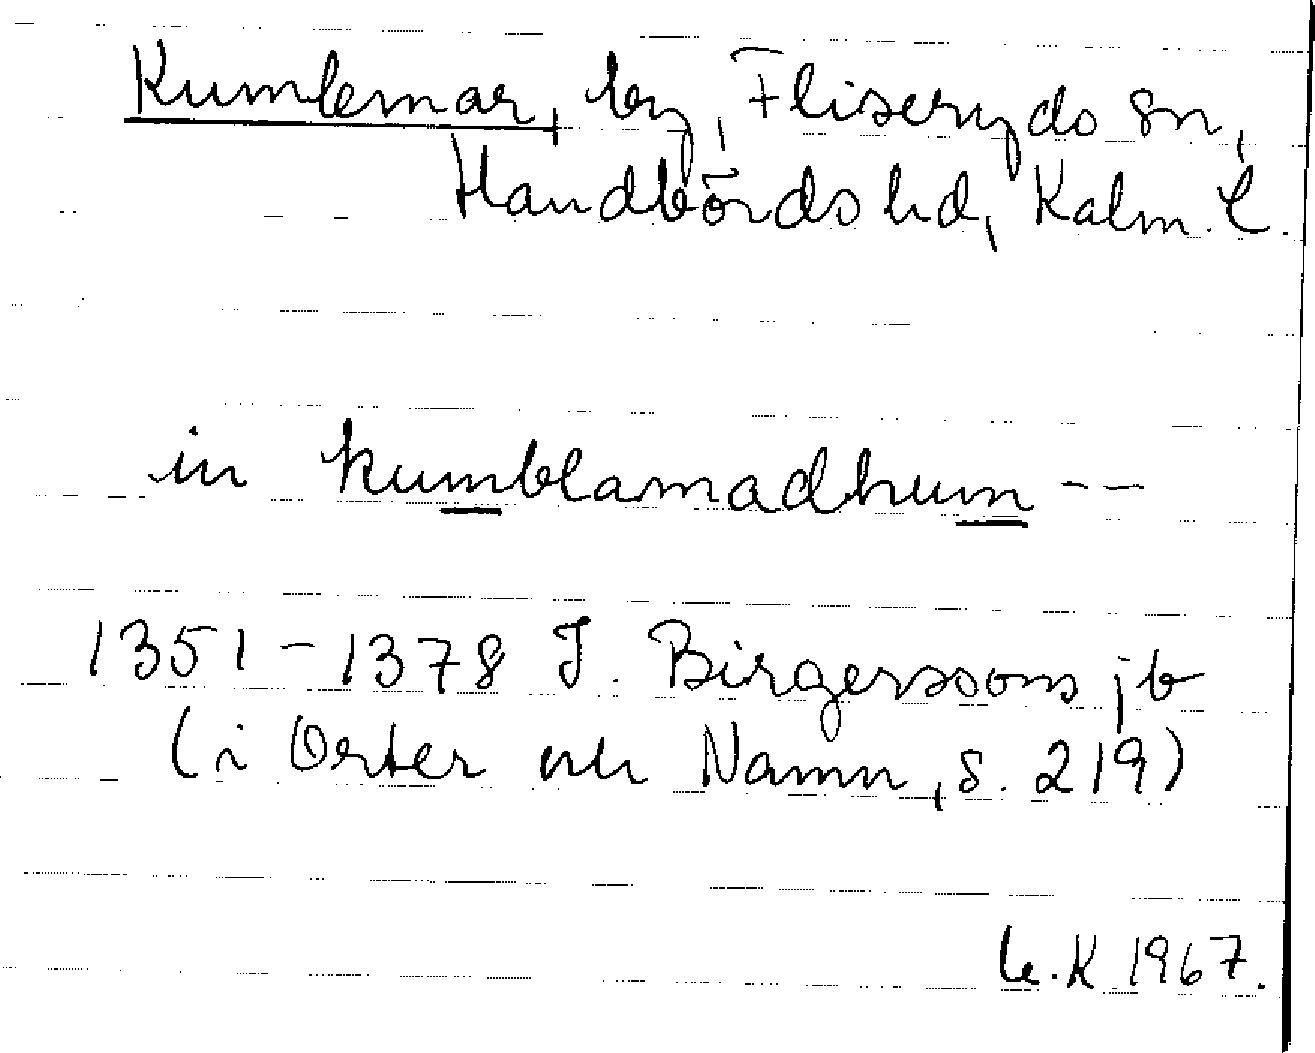 Kumlemar, by, Fliseryds sn,
Handbörds hd, Kalm. l.
in kumblamadhum --
1351-1378 J. Birgerssons jb
(i Orter och Namn, s. 219)
K 1967.